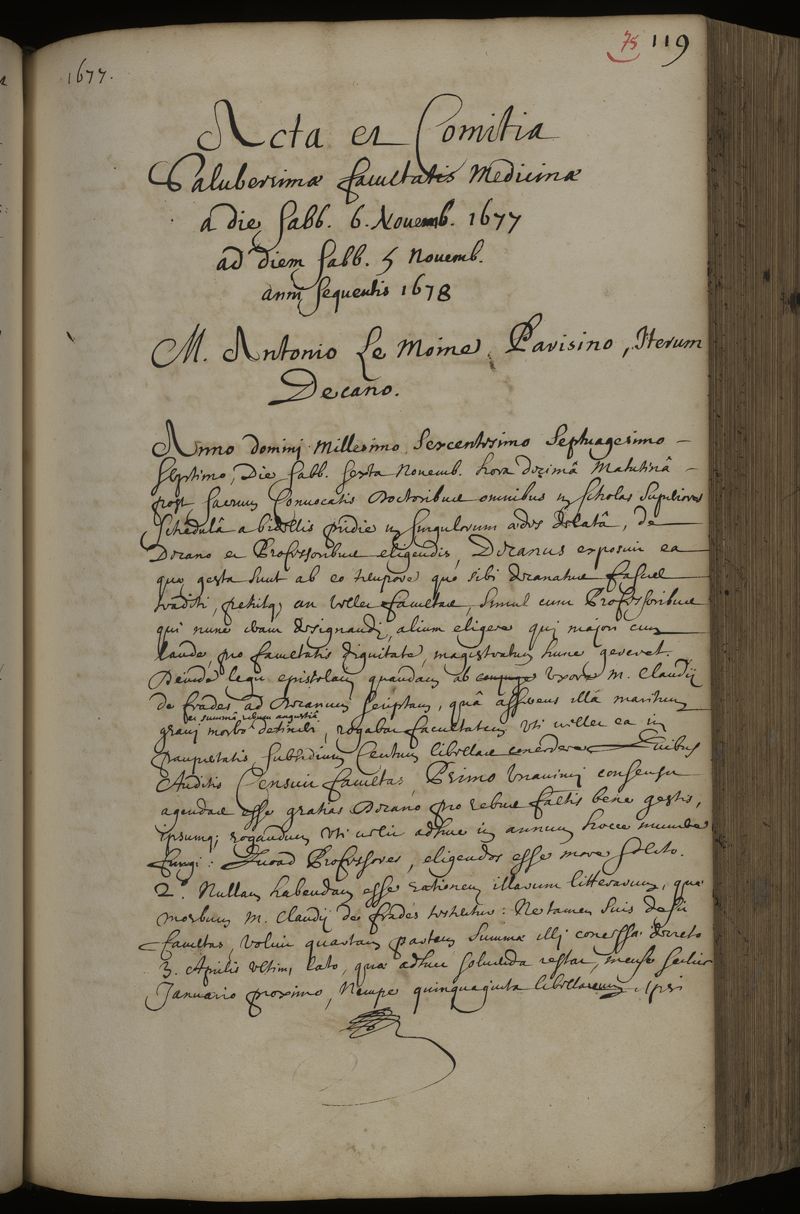 75 119
1677.
Acta et Comitia
Saluberrimæ facultatis Medicinæ
a die sabb. 6. Novemb. 1677
ad diem sabb. 5 Novemb.
anni sequentis 1678
M. Antonio Le Moine, Parisino, Iterum
Decano.
Anno Domini Millesimo Sexcentesimo Septuagesimo
septimo, Die sabb. sexta Novemb. hora decimâ Matutinâ
post sacrum Convocatis Doctoribus omnibus in scholas superiores
schedulâ a bidellis pridie in singulorum ædes delatâ, de
Decano et Professoribus eligendis, Decanus exposuit ea
quæ gesta sunt ab eo tempore quo sibi decanatus fasces
traditi, petiitq; an vellet facultas, simul cum Professoribus
qui nunc erant designandi, alium eligere qui majori cum
laude, pro facultatis dignitate, magistratum hunc gereret.
Deinde legit epistolam quandam ab uxore M. Claudij
de frades ad Decanum scriptam, quâ asserens illa maritum
et summâ rerum angustiâ
gravi morbo detineri, rogabat facultatem uti vellet ea in
paupertatis subsidium Centum libellas concedere. Quibus
Auditis Censuit facultas, Primo Unanimi consensu
agendas esse gratias Decano pro rebus factis bene gestis,
ipsumq; rogandum uti velit adhuc in annum hocce munere
fungi: Quoad Professores, eligendos esse more solito.
2.º Nullam habendam esse rationem illarum litterarum, quæ
morbum M. Claudij de frades testentur: Ne tamen suis desit
facultas, voluit quartam partem summæ illi concessæ decreto
3. Aprilis ultimi lato, quæ adhuc solvenda restat, mense scilicet
Januario proximo, Nempe quinquaginta libellarum Ipsi